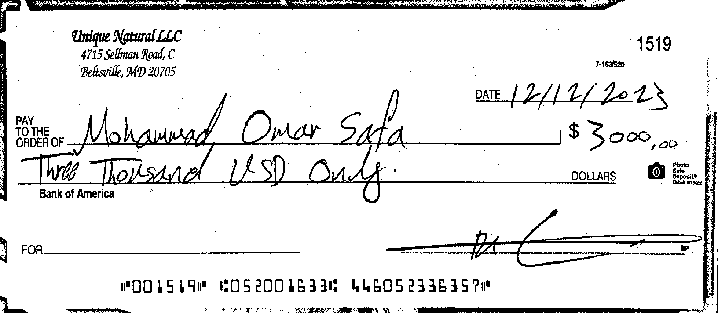 Unique Natural LLC
4715 Sellman Road, C
Beltsville, MD 20705
1519
7-163/520
DATE 12/12/2023
PAY TO THE ORDER OF Mohammad Omar Safa $ 3000,00
Three Thousand USD Only. DOLLARS
Photo Safe Deposit®
Bank of America
FOR
⑈001519⑈ ⑆052001633⑆ 446052336357⑈